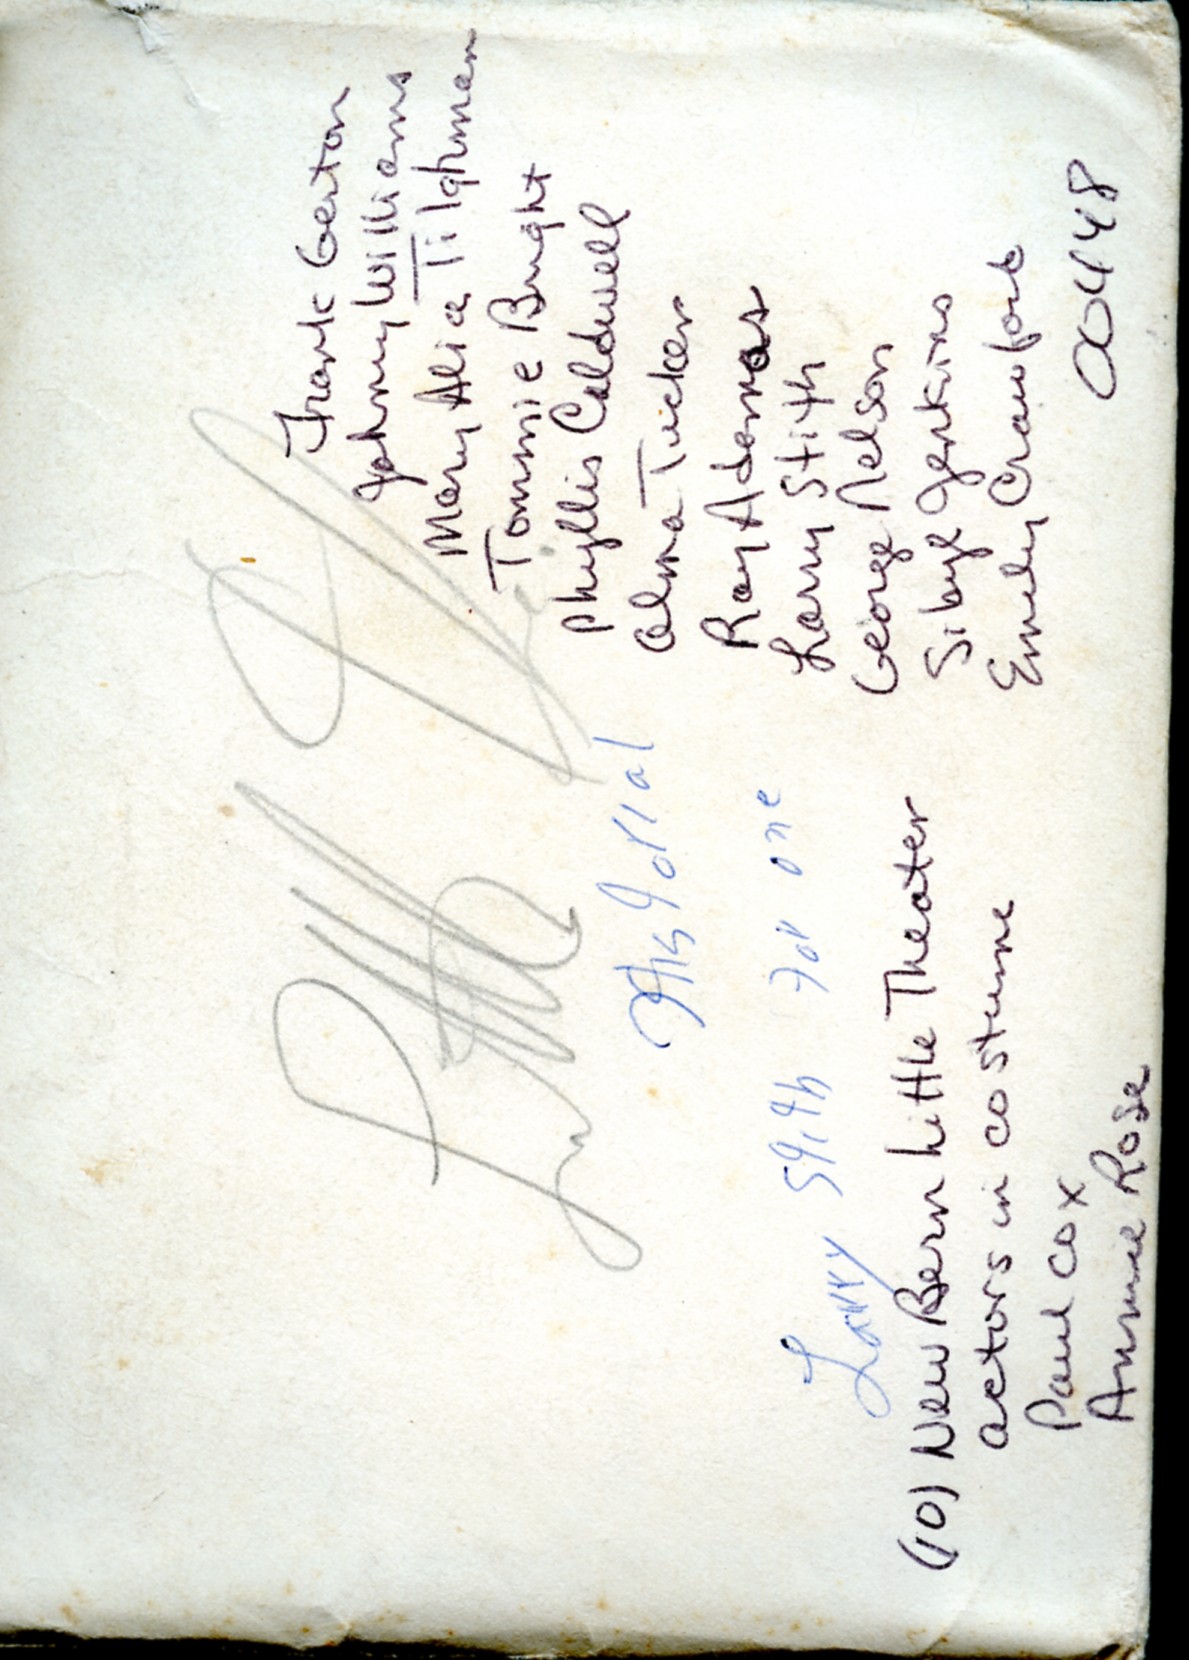 Historial
Larry Stith for one
(10) New Bern Little Theater
actors in costume
Paul Cox
Annie Rose
Frank Gerton
Johnny Williams
Mary Alice Tilghman
Tommie Bright
Phyllis Caldwell
Alma Tucker
Ray Adams
Larry Stith
George Nelson
Sibyl Jenkins
Emily Crawford
00448